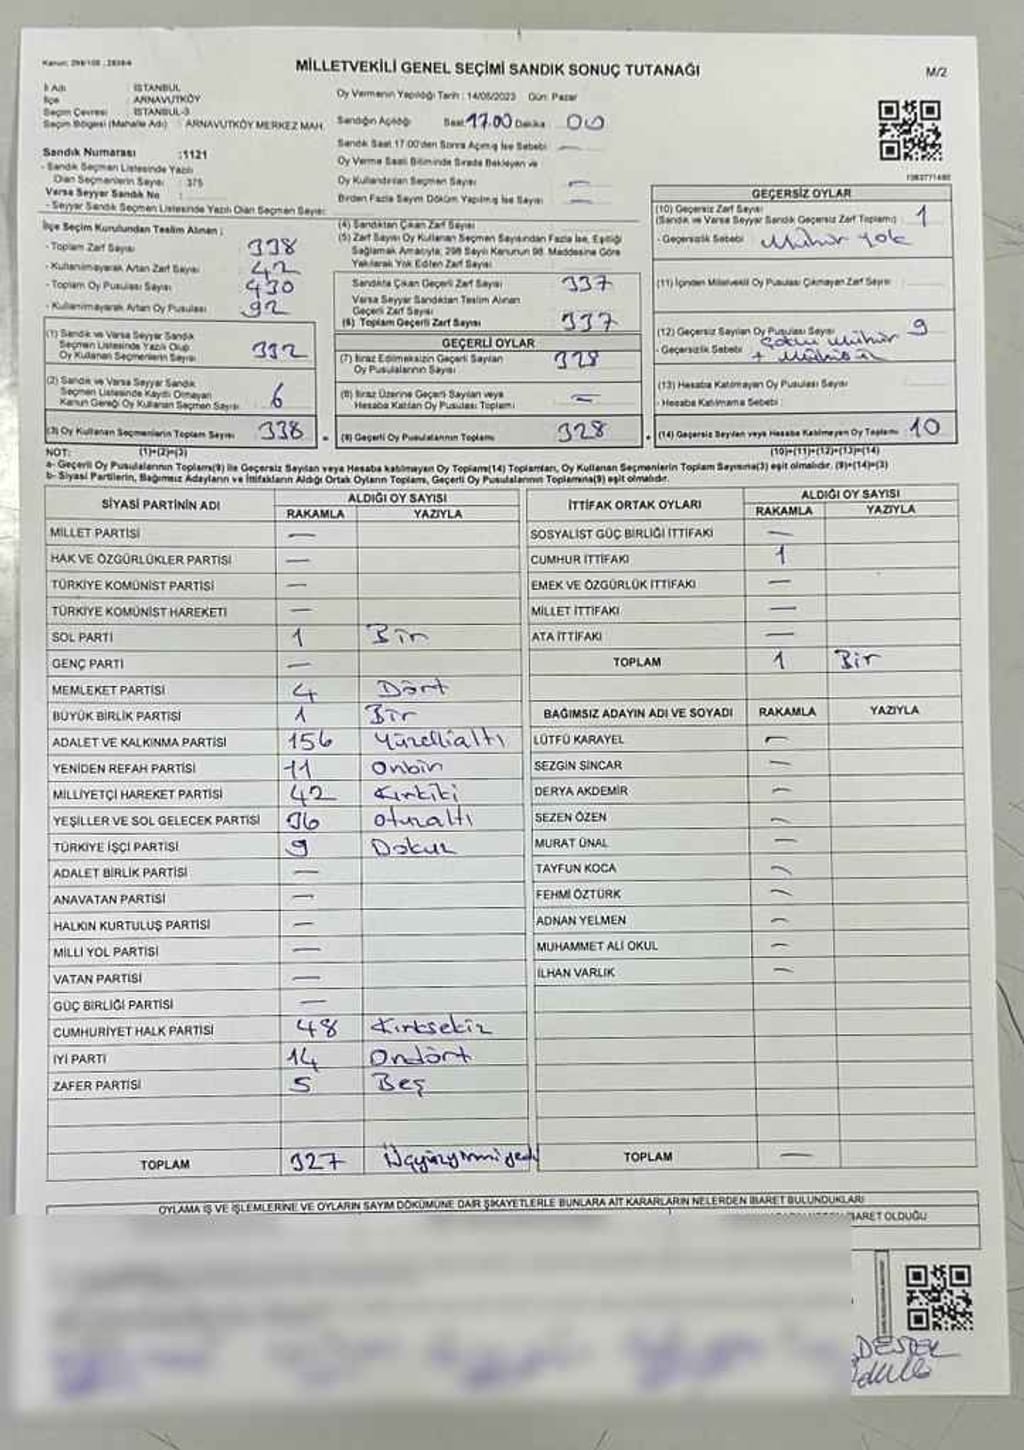 MİLLETVEKİLİ GENEL SEÇİMİ SANDIK SONUÇ TUTANAĞI
M/2
İl Adı : İSTANBUL
İlçe : ARNAVUTKÖY
Seçim Çevresi : İSTANBUL-3
Seçim Bölgesi (Mahalle Adı) : ARNAVUTKÖY MERKEZ MAH.
Sandık Numarası :1121
- Sandık Seçmen Listesinde Yazılı
Olan Seçmenlerin Sayısı : 375
Varsa Seyyar Sandık No :
- Seyyar Sandık Seçmen Listesinde Yazılı Olan Seçmen Sayısı:
Oy Vermenin Yapıldığı Tarih : 14/05/2023 Gün: Pazar
Sandığın Açıldığı Saat 17.00 Dakika 00
Sandık Saat 17.00'den Sonra Açılmış İse Sebebi —
Oy Verme Saati Bitiminde Sırada Bekleyen ve
Oy Kullandırılan Seçmen Sayısı —
Birden Fazla Sayım Döküm Yapılmış İse Sayısı —
İlçe Seçim Kurulundan Teslim Alınan ;
- Toplam Zarf Sayısı 338
- Kullanılmayarak Artan Zarf Sayısı 42
- Toplam Oy Pusulası Sayısı 430
- Kullanılmayarak Artan Oy Pusulası 92
(1) Sandık ve Varsa Seyyar Sandık
Seçmen Listesinde Yazılı Olup
Oy Kullanan Seçmenlerin Sayısı 332
(2) Sandık ve Varsa Seyyar Sandık
Seçmen Listesinde Kaydı Olmayan
Kanun Gereği Oy Kullanan Seçmen Sayısı 6
(3) Oy Kullanan Seçmenlerin Toplam Sayısı 338
(4) Sandıktan Çıkan Zarf Sayısı
(5) Zarf Sayısı Oy Kullanan Seçmen Sayısından Fazla İse, Eşitliği
Sağlamak Amacıyla, 298 Sayılı Kanunun 98. Maddesine Göre
Yakılarak Yok Edilen Zarf Sayısı
Sandıkta Çıkan Geçerli Zarf Sayısı 337
Varsa Seyyar Sandıktan Teslim Alınan
Geçerli Zarf Sayısı
(6) Toplam Geçerli Zarf Sayısı 337
GEÇERLİ OYLAR
(7) İtiraz Edilmeksizin Geçerli Sayılan
Oy Pusulalarının Sayısı 328
(8) İtiraz Üzerine Geçerli Sayılan veya
Hesaba Katılan Oy Pusulası Toplamı —
(9) Geçerli Oy Pusulalarının Toplamı 328
GEÇERSİZ OYLAR
(10) Geçersiz Zarf Sayısı 1
(Sandık ve Varsa Seyyar Sandık Geçersiz Zarf Toplamı)
- Geçersizlik Sebebi Mühür yok
(11) İçinden Milletvekili Oy Pusulası Çıkmayan Zarf Sayısı
(12) Geçersiz Sayılan Oy Pusulası Sayısı 9
- Geçersizlik Sebebi
(13) Hesaba Katılmayan Oy Pusulası Sayısı
- Hesaba Katılmama Sebebi :
(14) Geçersiz Sayılan veya Hesaba Katılmayan Oy Toplamı 10
NOT: (1)+(2)=(3) (10)+(11)+(12)+(13)=(14)
a- Geçerli Oy Pusulalarının Toplamı(9) ile Geçersiz Sayılan veya Hesaba katılmayan Oy Toplamı(14) Toplamları, Oy Kullanan Seçmenlerin Toplam Sayısına(3) eşit olmalıdır. (9)+(14)=(3)
b- Siyasi Partilerin, Bağımsız Adayların ve İttifakların Aldığı Ortak Oyların Toplamı, Geçerli Oy Pusulalarının Toplamına(9) eşit olmalıdır.
SİYASİ PARTİNİN ADI ALDIĞI OY SAYISI
RAKAMLA YAZIYLA
MİLLET PARTİSİ —
HAK VE ÖZGÜRLÜKLER PARTİSİ —
TÜRKİYE KOMÜNİST PARTİSİ —
TÜRKİYE KOMÜNİST HAREKETİ —
SOL PARTİ 1 Bir
GENÇ PARTİ —
MEMLEKET PARTİSİ 4 Dört
BÜYÜK BİRLİK PARTİSİ 1 Bir
ADALET VE KALKINMA PARTİSİ 156 Yüzellialtı
YENİDEN REFAH PARTİSİ 11 Onbir
MİLLİYETÇİ HAREKET PARTİSİ 42 Kırkiki
YEŞİLLER VE SOL GELECEK PARTİSİ 36 Otuzaltı
TÜRKİYE İŞÇİ PARTİSİ 9 Dokuz
ADALET BİRLİK PARTİSİ —
ANAVATAN PARTİSİ —
HALKIN KURTULUŞ PARTİSİ —
MİLLİ YOL PARTİSİ —
VATAN PARTİSİ —
GÜÇ BİRLİĞİ PARTİSİ —
CUMHURİYET HALK PARTİSİ 48 Kırksekiz
İYİ PARTİ 14 Ondört
ZAFER PARTİSİ 5 Beş
TOPLAM 327 Üçyüzyirmiyedi
İTTİFAK ORTAK OYLARI ALDIĞI OY SAYISI
RAKAMLA YAZIYLA
SOSYALİST GÜÇ BİRLİĞİ İTTİFAKI —
CUMHUR İTTİFAKI 1
EMEK VE ÖZGÜRLÜK İTTİFAKI —
MİLLET İTTİFAKI —
ATA İTTİFAKI —
TOPLAM 1 Bir
BAĞIMSIZ ADAYIN ADI VE SOYADI RAKAMLA YAZIYLA
LÜTFÜ KARAYEL —
SEZGİN SİNCAR —
DERYA AKDEMİR —
SEZEN ÖZEN —
MURAT ÜNAL —
TAYFUN KOCA —
FEHMİ ÖZTÜRK —
ADNAN YELMEN —
MUHAMMET ALİ OKUL —
İLHAN VARLIK —
TOPLAM —
OYLAMA İŞ VE İŞLEMLERİNE VE OYLARIN SAYIM DÖKÜMÜNE DAİR ŞİKAYETLERLE BUNLARA AİT KARARLARIN NELERDEN İBARET BULUNDUKLARI
İBARET OLDUĞU